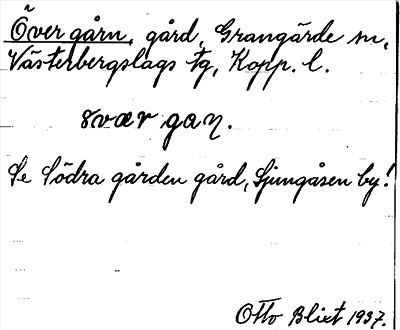 Övergårn, gård, Grangärde sn,
Västerbergslags tg, Kopp. l.
8vær gaɳ.
Se Södra gården gård, Sjungåsen by!
Otto Blixt 1937.